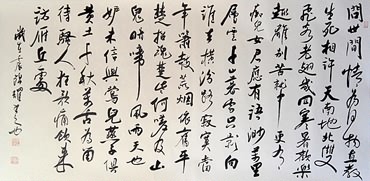 問世間情為何物直教
生死相許天南地北雙
飛客老翅幾回寒暑歡樂
趣離別苦就中更有
癡兒女君應有語渺萬里
層雲千山暮雪只影向
誰去橫汾路寂寞當
年簫鼓荒煙依舊平
楚招魂楚些何嗟及山
鬼暗啼風雨天也
妒未信與鶯兒燕子俱
黃土千秋萬古為留
待騷人狂歌痛飲來
訪雁丘處